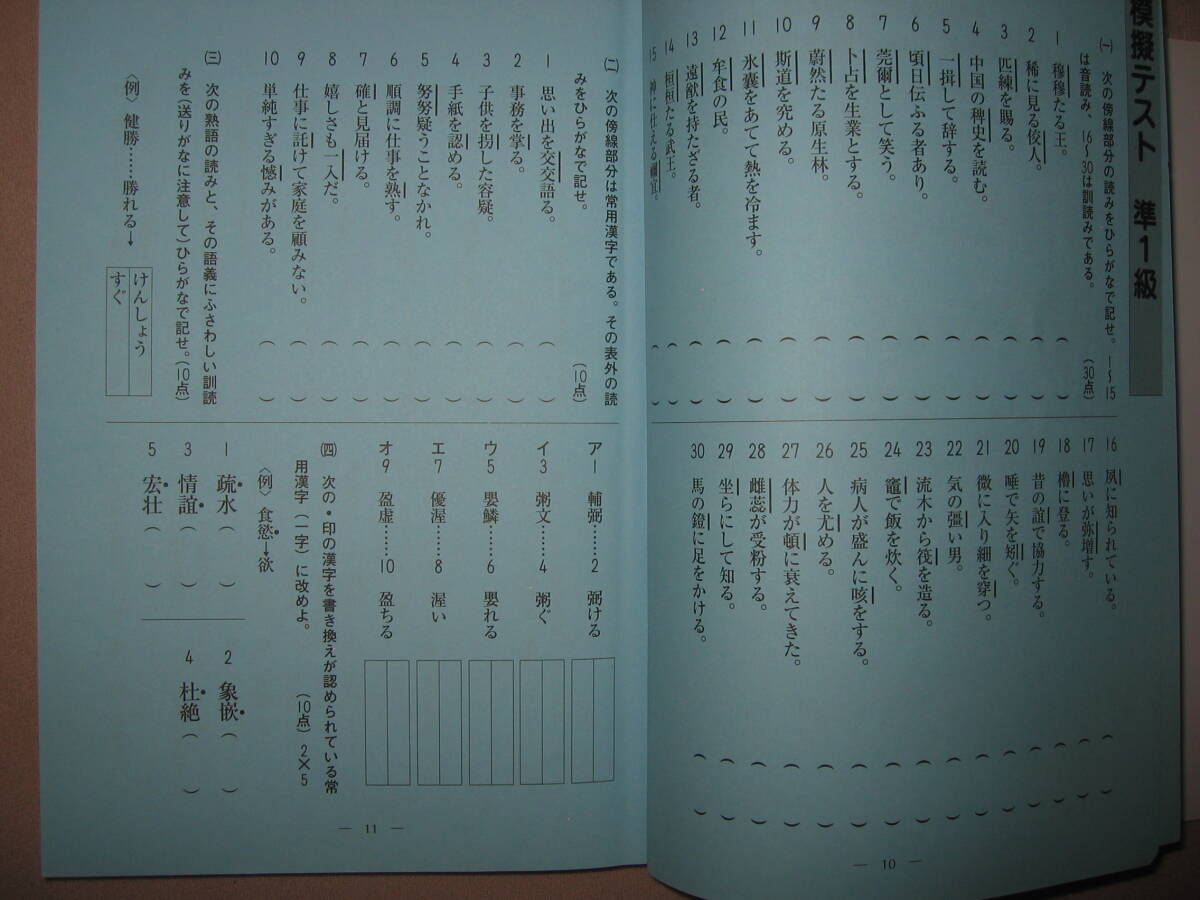 模擬テスト　準1級
(一)　次の傍線部分の読みをひらがなで記せ。1〜15
は音読み、16〜30は訓読みである。　(30点)
1　穆穆たる王。（　）
2　稀に見る佼人。（　）
3　匹練を賜る。（　）
4　中国の稗史を読む。（　）
5　一揖して辞する。（　）
6　頃日伝ふる者あり。（　）
7　莞爾として笑う。（　）
8　卜占を生業とする。（　）
9　蔚然たる原生林。（　）
10　斯道を究める。（　）
11　氷嚢をあてて熱を冷ます。（　）
12　牟食の民。（　）
13　遠猷を持たざる者。（　）
14　桓桓たる武王。（　）
15　神に仕える禰宜。（　）
16　夙に知られている。（　）
17　思いが弥増す。（　）
18　櫓に登る。（　）
19　昔の誼で協力する。（　）
20　唾で矢を矧ぐ。（　）
21　微に入り細を穿つ。（　）
22　気の彊い男。（　）
23　流木から筏を造る。（　）
24　竈で飯を炊く。（　）
25　病人が盛んに咳をする。（　）
26　人を尤める。（　）
27　体力が頓に衰えてきた。（　）
28　雌蕊が受粉する。（　）
29　坐らにして知る。（　）
30　馬の鐙に足をかける。（　）
— 10 —
(二)　次の傍線部分は常用漢字である。その表外の読
みをひらがなで記せ。　(10点)
1　思い出を交交語る。（　）
2　事務を掌る。（　）
3　子供を拐した容疑。（　）
4　手紙を認める。（　）
5　努努疑うことなかれ。（　）
6　順調に仕事を熟す。（　）
7　確と見届ける。（　）
8　嬉しさも一入だ。（　）
9　仕事に託けて家庭を顧みない。（　）
10　単純すぎる憾みがある。（　）
(三)　次の熟語の読みと、その語義にふさわしい訓読
みを(送りがなに注意して)ひらがなで記せ。(10点)
〈例〉　健勝……勝れる→　けんしょう
すぐ
ア1　輔弼……2　弼ける
イ3　粥文……4　粥ぐ
ウ5　嬰鱗……6　嬰れる
エ7　優渥……8　渥い
オ9　盈虚……10　盈ちる
(四)　次の・印の漢字を書き換えが認められている常
用漢字(一字)に改めよ。　(10点)　2×5
〈例〉　食慾→欲
1　疏水（　）
2　象嵌（　）
3　情誼（　）
4　杜絶（　）
5　宏壮（　）
— 11 —